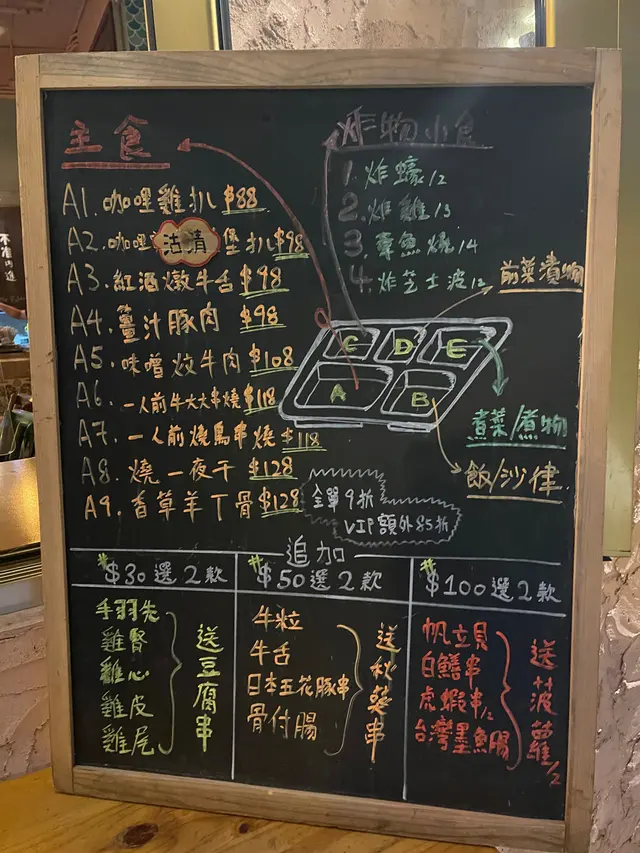 主食
A1. 咖哩雞扒 $88
A2. 咖哩 沽清 堡扒 $98
A3. 紅酒燉牛舌 $98
A4. 薑汁豚肉 $98
A5. 味噌炆牛肉 $108
A6. 一人前牛大大串燒 $118
A7. 一人前燒鳥串燒 $118
A8. 燒一夜干 $128
A9. 香草羊丁骨 $128
炸物小食
1. 炸蠔/2
2. 炸雞/3
3. 章魚燒/4
4. 炸芝士波/2
前菜漬物
C D E
A B
煮菜/煮物
飯/沙律
全單9折
VIP額外85折
追加
#$30選2款
手羽先
雞腎
雞心
雞皮
雞尾
送豆腐串
#$50選2款
牛粒
牛舌
日本五花豚串
骨付腸
送秋葵串
#$100選2款
帆立貝
白鱔串
虎蝦串/2
台灣墨魚腸
送廿波蘿/2